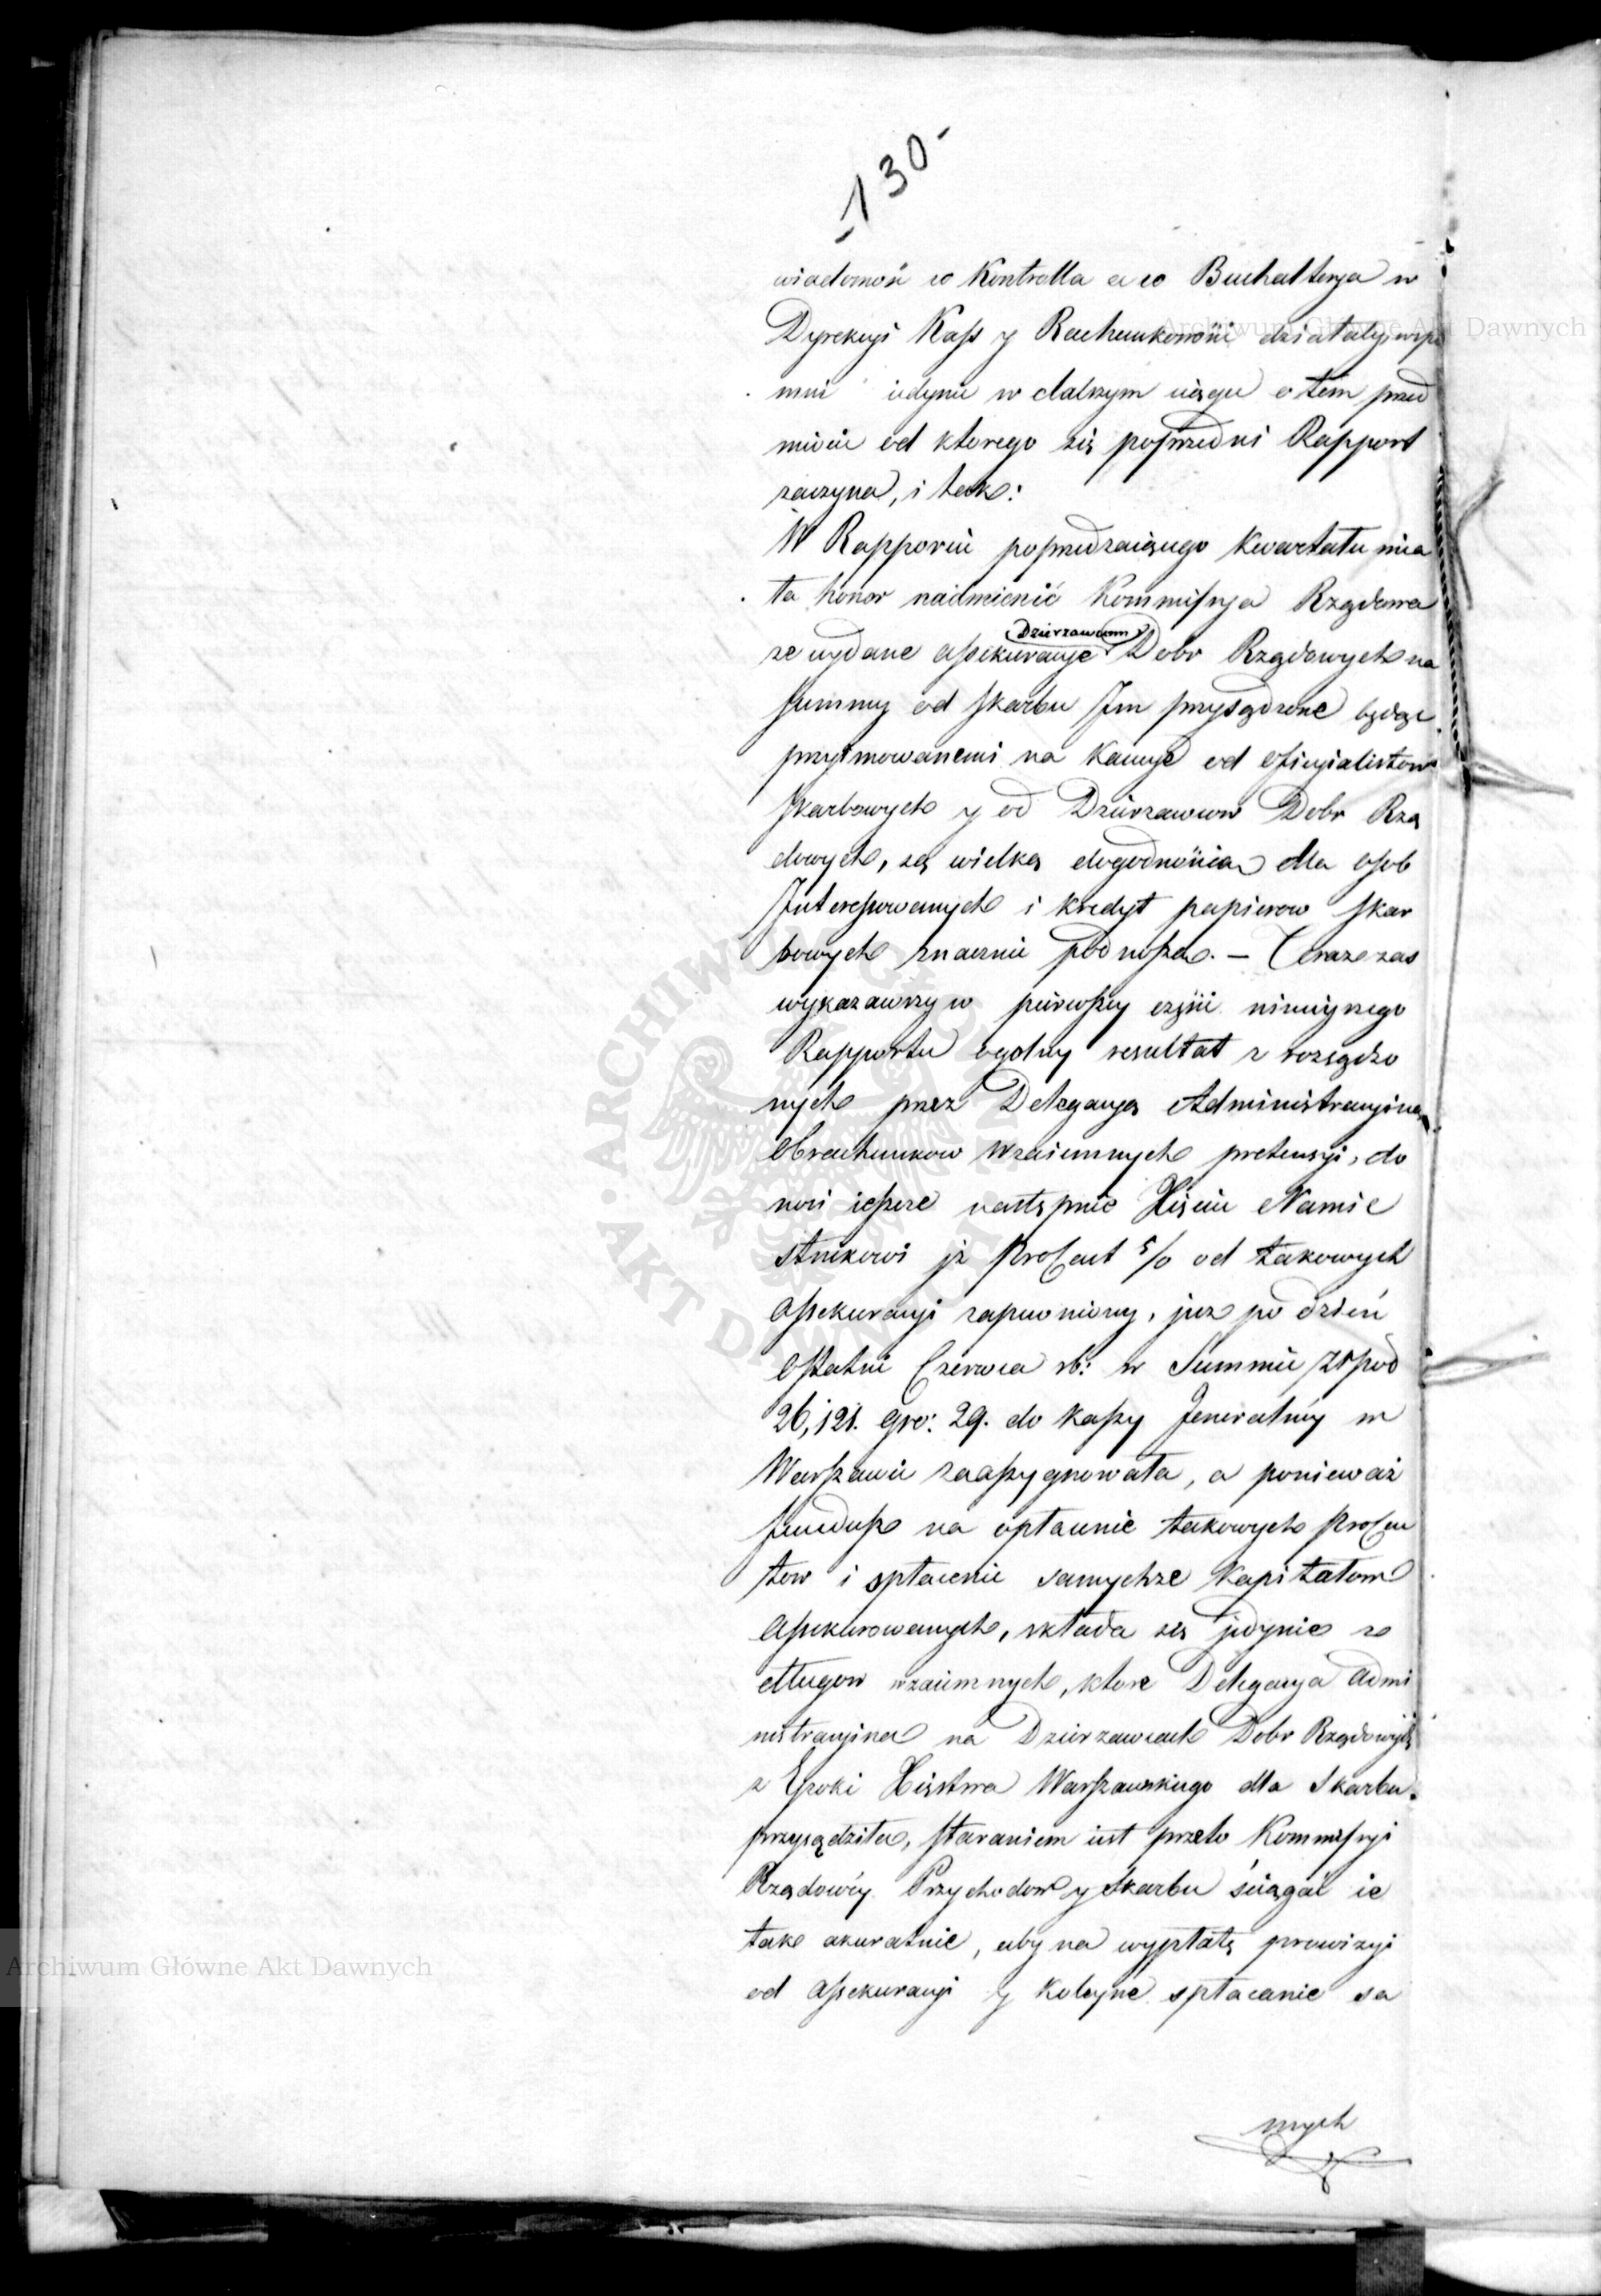 -130-
wiadomość co Kontrolla a co Buchalterya w
Dyrekcyi Kass y Rachunkowości działały, wspo
mni iedynie w dalszym ciągu o tem przed
miocie od ktorego się poprzedni Rapport
zaczyna, i tak:
W Rapporcie poprzedzaiącego Kwartału mia
ła honor nadmienić Kommissya Rządowa
ze wydane assekuracye Dzierzawcom Dobr Rządowych na
summy od skarbu Im przysądzone będąc
przyimowanemi na Kaucye od Officyalistow
skarbowych y od Dzierzawcow Dobr Rzą
dowych, są wielką dogodnością dla osob
Interessowanych i kredyt papierow skar
bowych znacznie podnoszą. — Teraz zas
wykazawszy w pierwszey części ninieyszego
Rapportu ogolny resultat z rozsądzo
nych przez Delegacyą Administracyiną
Obrachunkow wzaiemnych pretensyi, do
nosi ieszcze następnie Xięciu Namie
stnikowi iż Procent 5/0 od takowych
Assekuracyi zapewniony, juz po dzień
ostatni Czerwca rb: w Summie złpol
26,121. gro: 29. do Kassy Jeneralney w
Warszawie zaassygnowała, a ponieważ
fundusz na opłacenie takowych Procen
tow i spłacenie samychze Kapitałow
Assekurowanych, składa się jedynie ze
długow wzaiemnych, ktore Delegacya Admi
nistracyina na Dzierzawcach Dobr Rządowych
z Epoki Xięstwa Warszawskiego dla Skarbu
przysądziła, staraniem iest przeto Kommissyi
Rządowey Przychodow y Skarbu ściągać ie
tak akuratnie, aby na wypłatę prowizyi
od Assekuracyi y koleyne spłacanie sa
mych
Archiwum Główne Akt Dawnych
Archiwum Główne Akt Dawnych